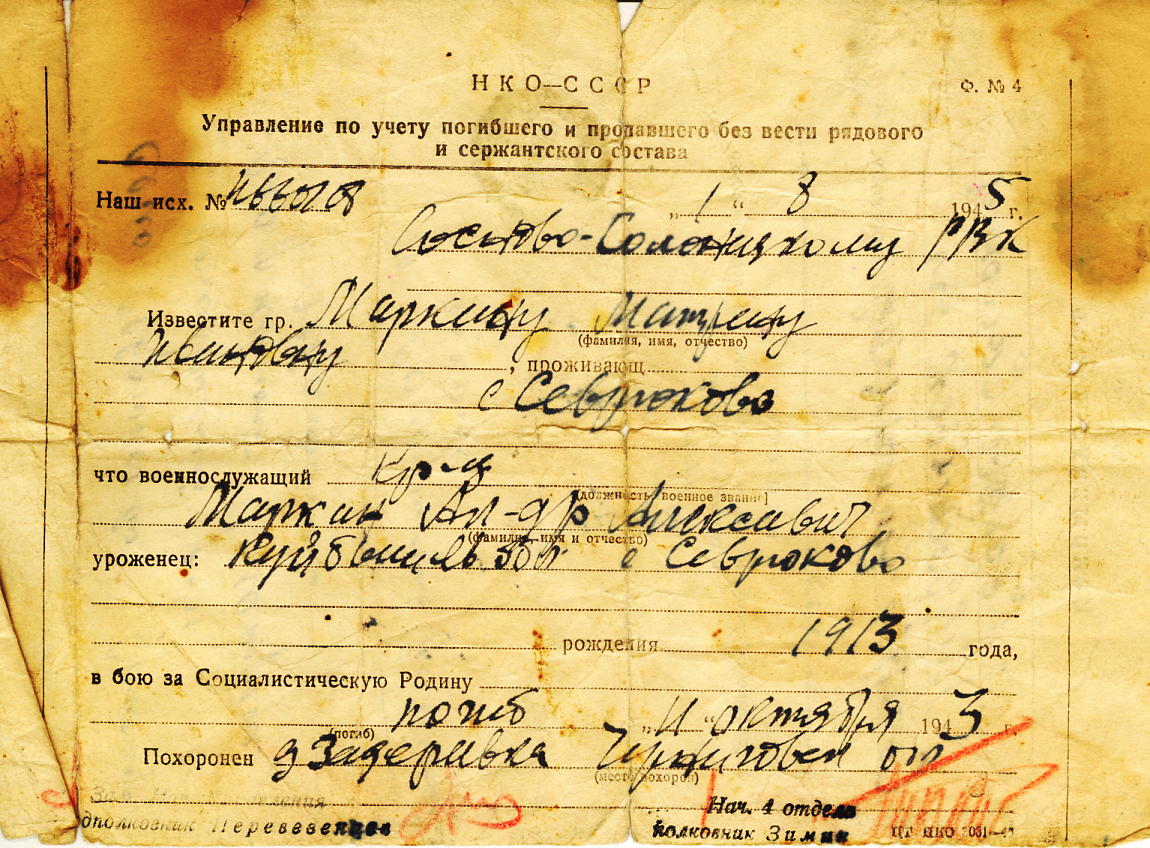 НКО—СССР
Ф. № 4
Управление по учету погибшего и пропавшего без вести рядового
и сержантского состава
Наш исх. №
„1“ 8 1945 г.
Сосново-Солонецкому РВК
Известите гр. Маркину Матрену
(фамилия, имя, отчество)
Ивановну, проживающ
с Севрюково
что военнослужащий кр-ц
(должность, военное звание)
Маркин Ал-др Алексевич
(фамилия, имя и отчество)
уроженец: Куйбышевск обл с Севрюково
рождения 1913 года,
в бою за Социалистическую Родину
погиб „11“ октября 1943 г.
(погиб)
Похоронен д Задеривка Черниговск обл
(место похорон)
Нач. 4 отдела
дполковник Перевезенцев
полковник Зимин